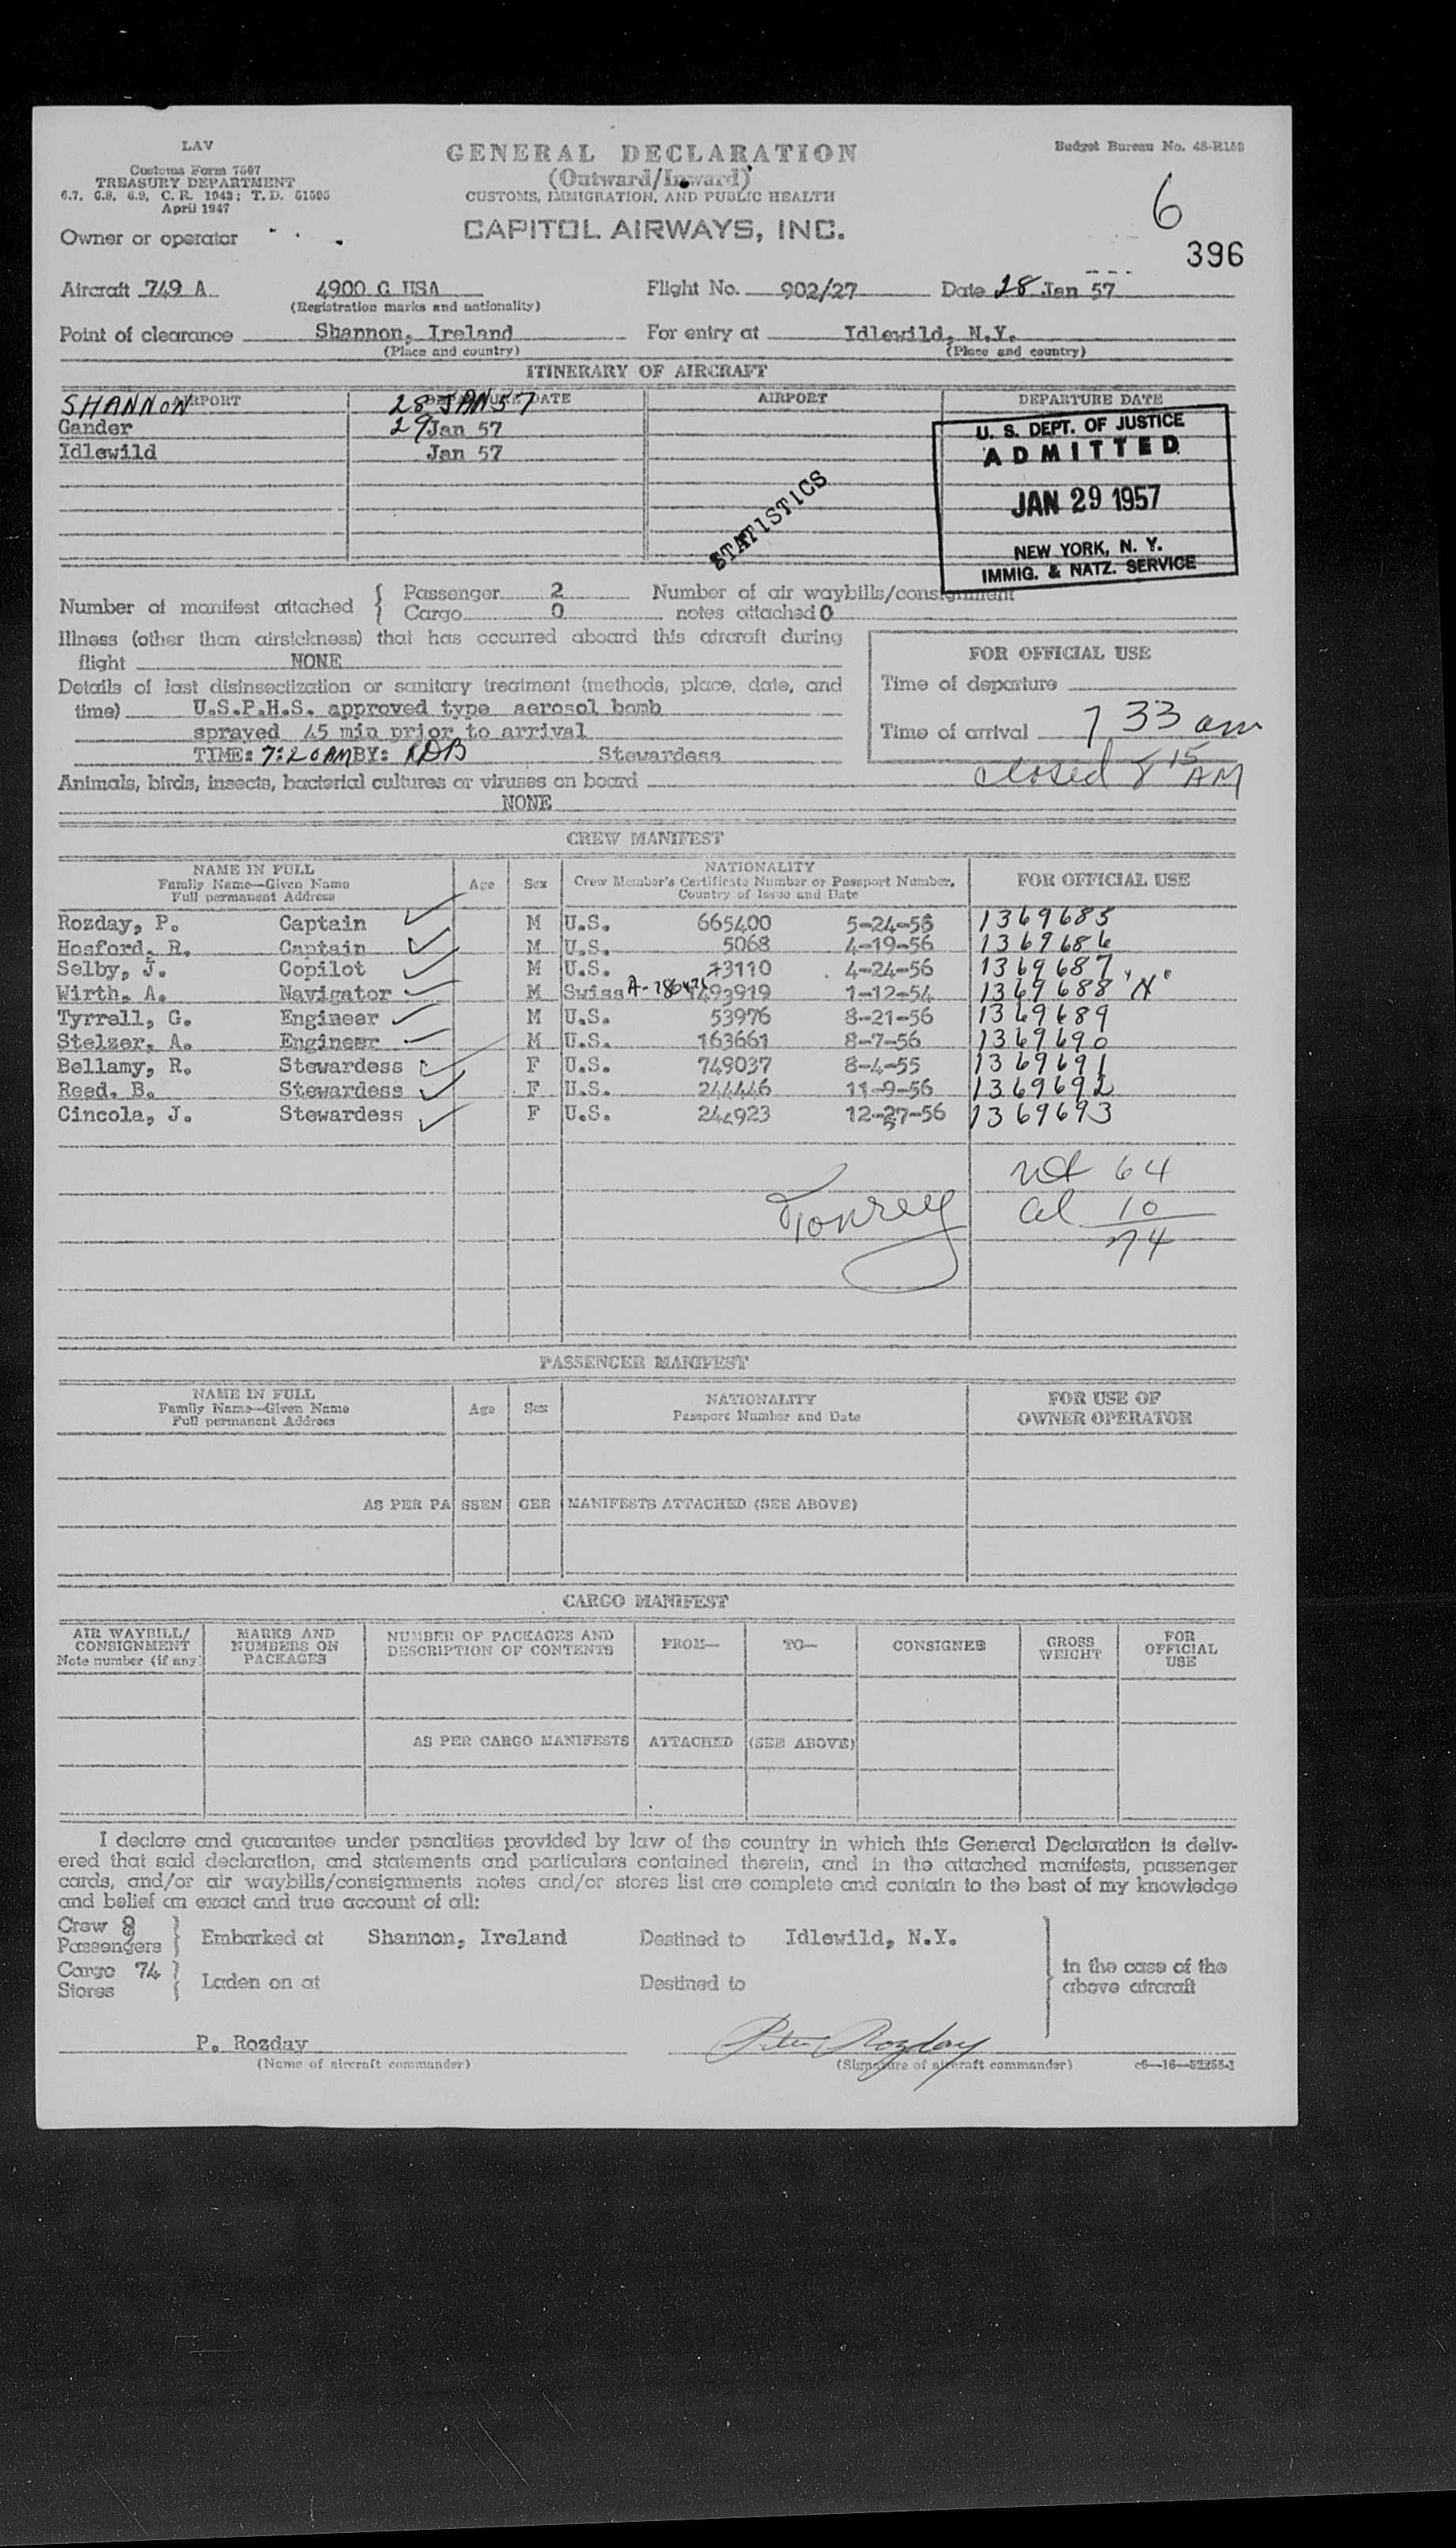 LAV
Customs Form 7507
TREASURY DEPARTMENT
6.7, 6.8, 6.9, C. R. 1943; T. D. 51595
April 1947
GENERAL DECLARATION
(Outward/Inward)
CUSTOMS, IMMIGRATION, AND PUBLIC HEALTH
CAPITOL AIRWAYS, INC.
Budget Bureau No. 48-R153
6
396
Owner or operator
Aircraft 749 A 4900 C USA Flight No. 902/27 Date 28 Jan 57
(Registration marks and nationality)
Point of clearance Shannon, Ireland For entry at Idlewild, N.Y.
(Place and country) (Place and country)
ITINERARY OF AIRCRAFT
AIRPORT DEPARTURE DATE AIRPORT DEPARTURE DATE
SHANNON 28 JAN 57
Gander 29 Jan 57
Idlewild Jan 57
STATISTICS
U. S. DEPT. OF JUSTICE
ADMITTED
JAN 29 1957
NEW YORK, N. Y.
IMMIG. & NATZ. SERVICE
Number of manifest attached { Passenger 2 Number of air waybills/consignment
Cargo 0 notes attached 0
Illness (other than airsickness) that has occurred aboard this aircraft during
flight NONE
Details of last disinsectization or sanitary treatment (methods, place, date, and
time) U.S.P.H.S. approved type aerosol bomb
sprayed 45 min prior to arrival
TIME: 7:20 AM BY: RDB Stewardess
FOR OFFICIAL USE
Time of departure
Time of arrival 7 33 am
closed 8 15 AM
Animals, birds, insects, bacterial cultures or viruses on board
NONE
CREW MANIFEST
NAME IN FULL
Family Name—Given Name
Full permanent Address
Age
Sex
NATIONALITY
Crew Member's Certificate Number or Passport Number,
Country of Issue and Date
FOR OFFICIAL USE
Rozday, P. Captain M U.S. 665400 5-24-56 1369685
Hosford, R. Captain M U.S. 5068 4-19-56 1369686
Selby, J. Copilot M U.S. 73110 4-24-56 1369687
Wirth, A. Navigator M Swiss 1493919 1-12-54 1369688 "N"
Tyrrell, G. Engineer M U.S. 53976 8-21-56 1369689
Stelzer, A. Engineer M U.S. 163661 8-7-56 1369690
Bellamy, R. Stewardess F U.S. 749037 8-4-55 1369691
Reed, B. Stewardess F U.S. 244446 11-9-56 1369692
Cincola, J. Stewardess F U.S. 242923 12-27-56 1369693
64
al 10
74
PASSENGER MANIFEST
NAME IN FULL
Family Name—Given Name
Full permanent Address
Age
Sex
NATIONALITY
Passport Number and Date
FOR USE OF
OWNER OPERATOR
AS PER PASSENGER MANIFESTS ATTACHED (SEE ABOVE)
CARGO MANIFEST
AIR WAYBILL/
CONSIGNMENT
Note number (if any)
MARKS AND
NUMBERS ON
PACKAGES
NUMBER OF PACKAGES AND
DESCRIPTION OF CONTENTS
FROM—
TO—
CONSIGNEE
GROSS
WEIGHT
FOR
OFFICIAL
USE
AS PER CARGO MANIFESTS ATTACHED (SEE ABOVE)
I declare and guarantee under penalties provided by law of the country in which this General Declaration is deliv-
ered that said declaration, and statements and particulars contained therein, and in the attached manifests, passenger
cards, and/or air waybills/consignments notes and/or stores list are complete and contain to the best of my knowledge
and belief an exact and true account of all:
Crew 9
Passengers } Embarked at Shannon, Ireland Destined to Idlewild, N.Y.
Cargo 74
Stores { Laden on at Destined to
in the case of the
above aircraft
P. Rozday Peter Rozday
(Name of aircraft commander) (Signature of aircraft commander) c6—16—52255-1